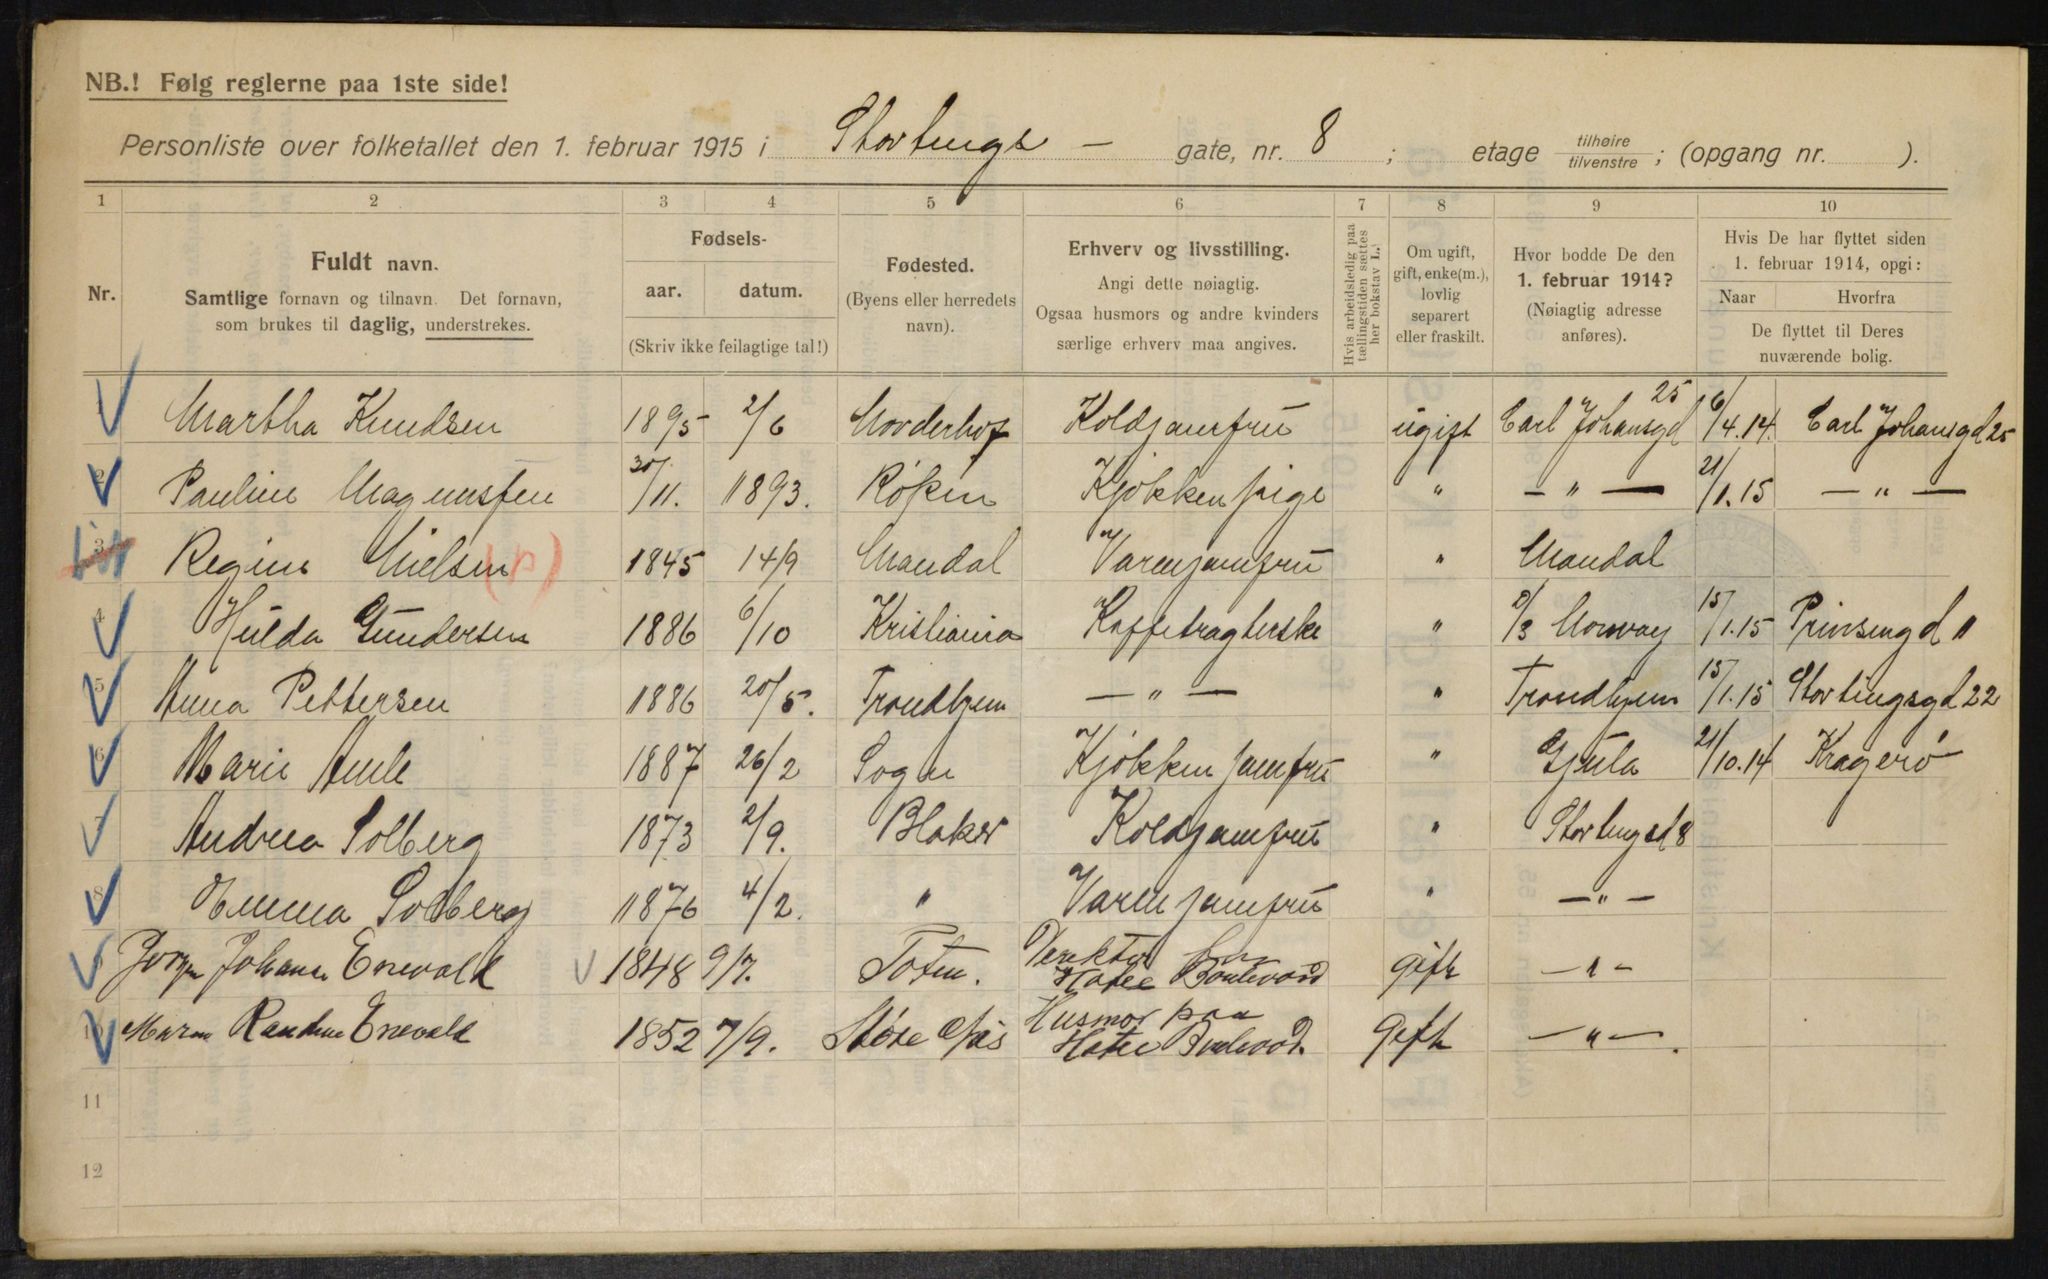 NB.! Følg reglerne paa 1ste side!
Personliste over folketallet den 1. februar 1915 i Stortings — gate, nr. 8 ; etage tilhøire tilvenstre ; (opgang nr. ).
1 2 3 4 5 6 7 8 9 10
Nr.
Fuldt navn.
Samtlige fornavn og tilnavn. Det fornavn,
som brukes til daglig, understrekes.
Fødsels-
aar. datum.
(Skriv ikke feilagtige tal!)
Fødested.
(Byens eller herredets
navn).
Erhverv og livsstilling.
Angi dette nøiagtig.
Ogsaa husmors og andre kvinders
særlige erhverv maa angives.
Hvis arbeidsledig paa
tællingstiden sættes
her bokstav L.
Om ugift,
gift, enke(m.),
lovlig
separert
eller fraskilt.
Hvor bodde De den
1. februar 1914?
(Nøiagtig adresse
anføres).
Hvis De har flyttet siden
1. februar 1914, opgi:
Naar Hvorfra
De flyttet til Deres
nuværende bolig.
1 Martha Knudsen 1895 2/6 Norderhof Koldjomfru ugift Carl Johansgd 25 6/4.14. Carl Johansgd 25
2 Pauline Magnussen 30/11. 1893. Røken Kjøkkenpige " — " — 21/1.15 — " —
3 Regine Nielsen (p) 1845 14/9 Mandal Varmjomfru " Mandal
4 Hulda Gundersen 1886 6/10 Kristiania Kaffetragterske " Norway 15/1.15 Prinsengd "
5 Anna Pettersen 1886 20/5. Trondhjem — " — " Trondhjem 15/1.15 Stortingsgd 22
6 Marie 1887 26/2 Sogn Kjøkkenjomfru " 21/10.14 Kragerø
7 Andrea Solberg 1873 2/9. Blaker Koldjomfru " Stortingsgd 8
8 Emma Solberg 1876 4/2. " Varmjomfru " — " —
9 Jørgen Johannes Enevold 1848 9/7. Toten. Direktør for
Hotel Boulevard gift — " —
10 Maren Randine Enevold 1852 7/9. Husmor paa
Hotel Boulevard. gift — " —.
11
12